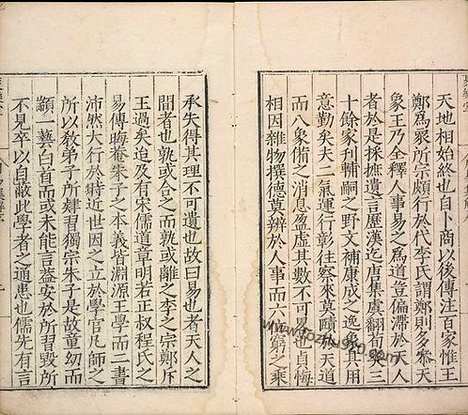 天地相終始也自卜商以後傳注百家
鄭爲眾所宗頗行於代李氏謂鄭則多參天
象王乃全釋人事易之爲道豈偏滯於天人
者於是採摭遺言歷漢迄唐集虞翻荀爽三
十餘家刊輔嗣之野文補康成之逸象其用
意勤矣夫二氣運行彰往察來莫賾於天道
而八象備之消息盈虛其數不可
相因雜物撰德莫辨於人事而六 窮之乘
承失得其理不可遺也故曰易也者天人之
間者也孰或合之而孰或離之李之宗鄭斥
王過矣迨及有宋儒道章明若正叔程氏之
易傳晦庵朱子之本義皆淵源王學而二書
沛然大行於時近世因之立於學官凡師之
所以敎弟子所肄習獨宗朱子是故童幼而
顓一藝白首而或未能言蓋安於所習毀所
不見卒以自蔽此學者之通患也儒先有言